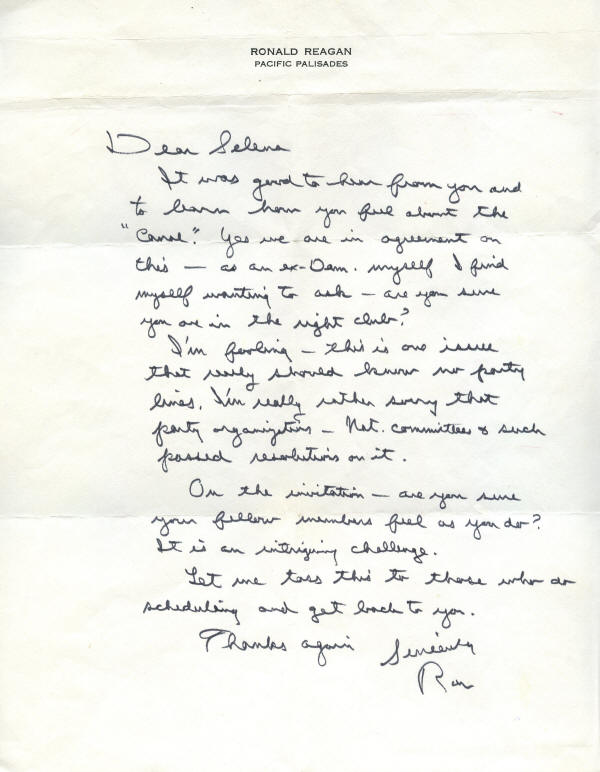 RONALD REAGAN
PACIFIC PALISADES
Dear Selena
It was good to hear from you and
to learn how you feel about the
"Canal." Yes we are in agreement on
this — as an ex-Dem. myself I find
myself wanting to ask — are you sure
you are in the right club?
I'm fooling — this is one issue
that really should know no party
lines. I'm really rather sorry that
party organizations — Nat. committees & such
passed resolutions on it.
On the invitation — are you sure
your fellow members feel as you do?
It is an intriguing challenge.
Let me toss this to those who do
scheduling and get back to you.
Thanks again Sincerely
Ron